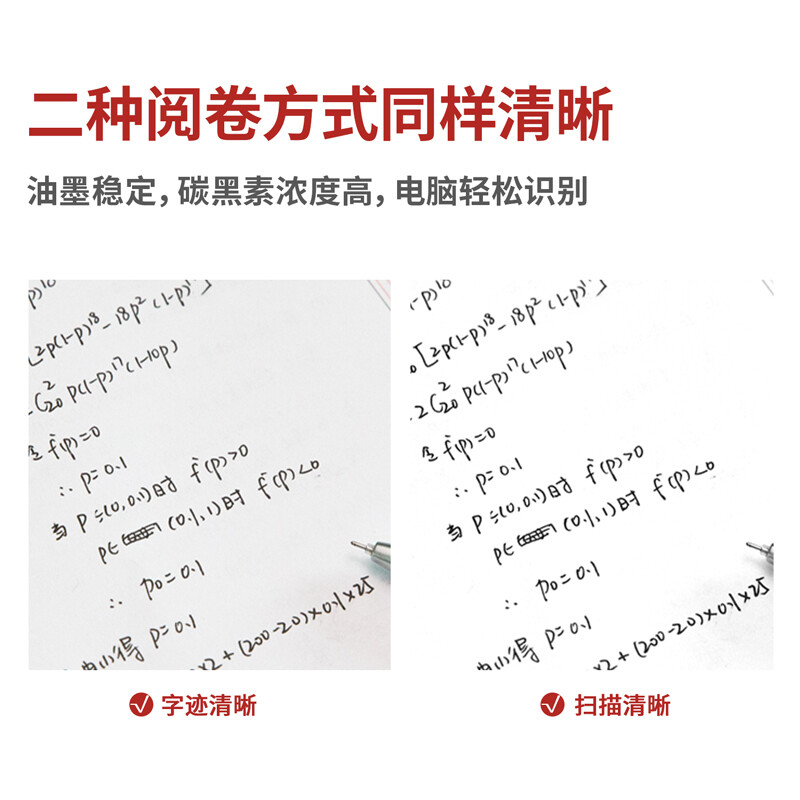 二种阅卷方式同样清晰
油墨稳定，碳黑素浓度高，电脑轻松识别
-p)
[2p(1-p)^18 - 18p^2(1-p)^17]
C_20^2 p(1-p)^17(1-10p)
f'(p)=0
∴ p=0.1
当 p=(0,0.1)时 f'(p)>0
p∈ (0.1,1)时 f'(p)<0
∴ p0=0.1
得 p=0.1
×2+(200-20)×0.1×25
-p)^10
[2p(1-p)^18 - 18p^2(1-p)^17]
2C_20^2 p(1-p)^17(1-10p)
f'(p)=0
∴ p=0.1
当 p=(0,0.1)时 f'(p)>0
p∈ (0.1,1)时 f'(p)<0
∴ p0=0.1
得 p=0.1
×2+(200-20)×0.1×25
字迹清晰
扫描清晰